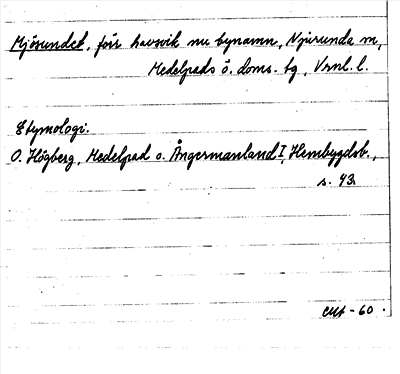 Mjösundet, förr havsvik nu bynamn, Njurunda sn,
Medelpads ö. doms. tg, Vrnl. l.
Etymologi.
O. Högberg, Medelpad o. Ångermanland I, Hembygdsb.,
s. 43.
-60.